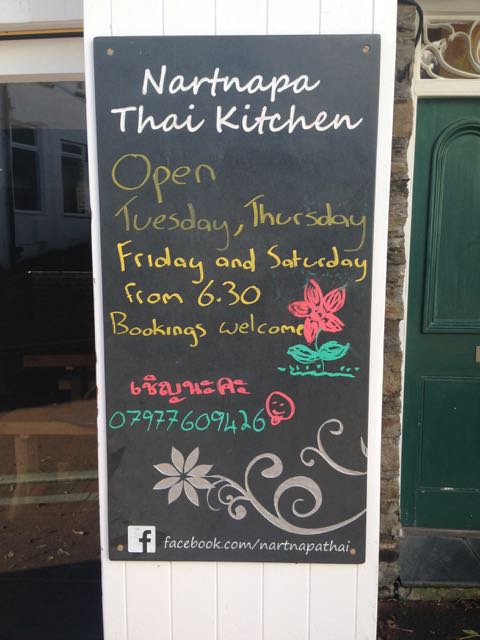 Nartnapa
Thai Kitchen
Open
Tuesday, Thursday
Friday and Saturday
from 6.30
Bookings welcome
เชิญนะคะ
07977609426
f facebook.com/nartnapathai